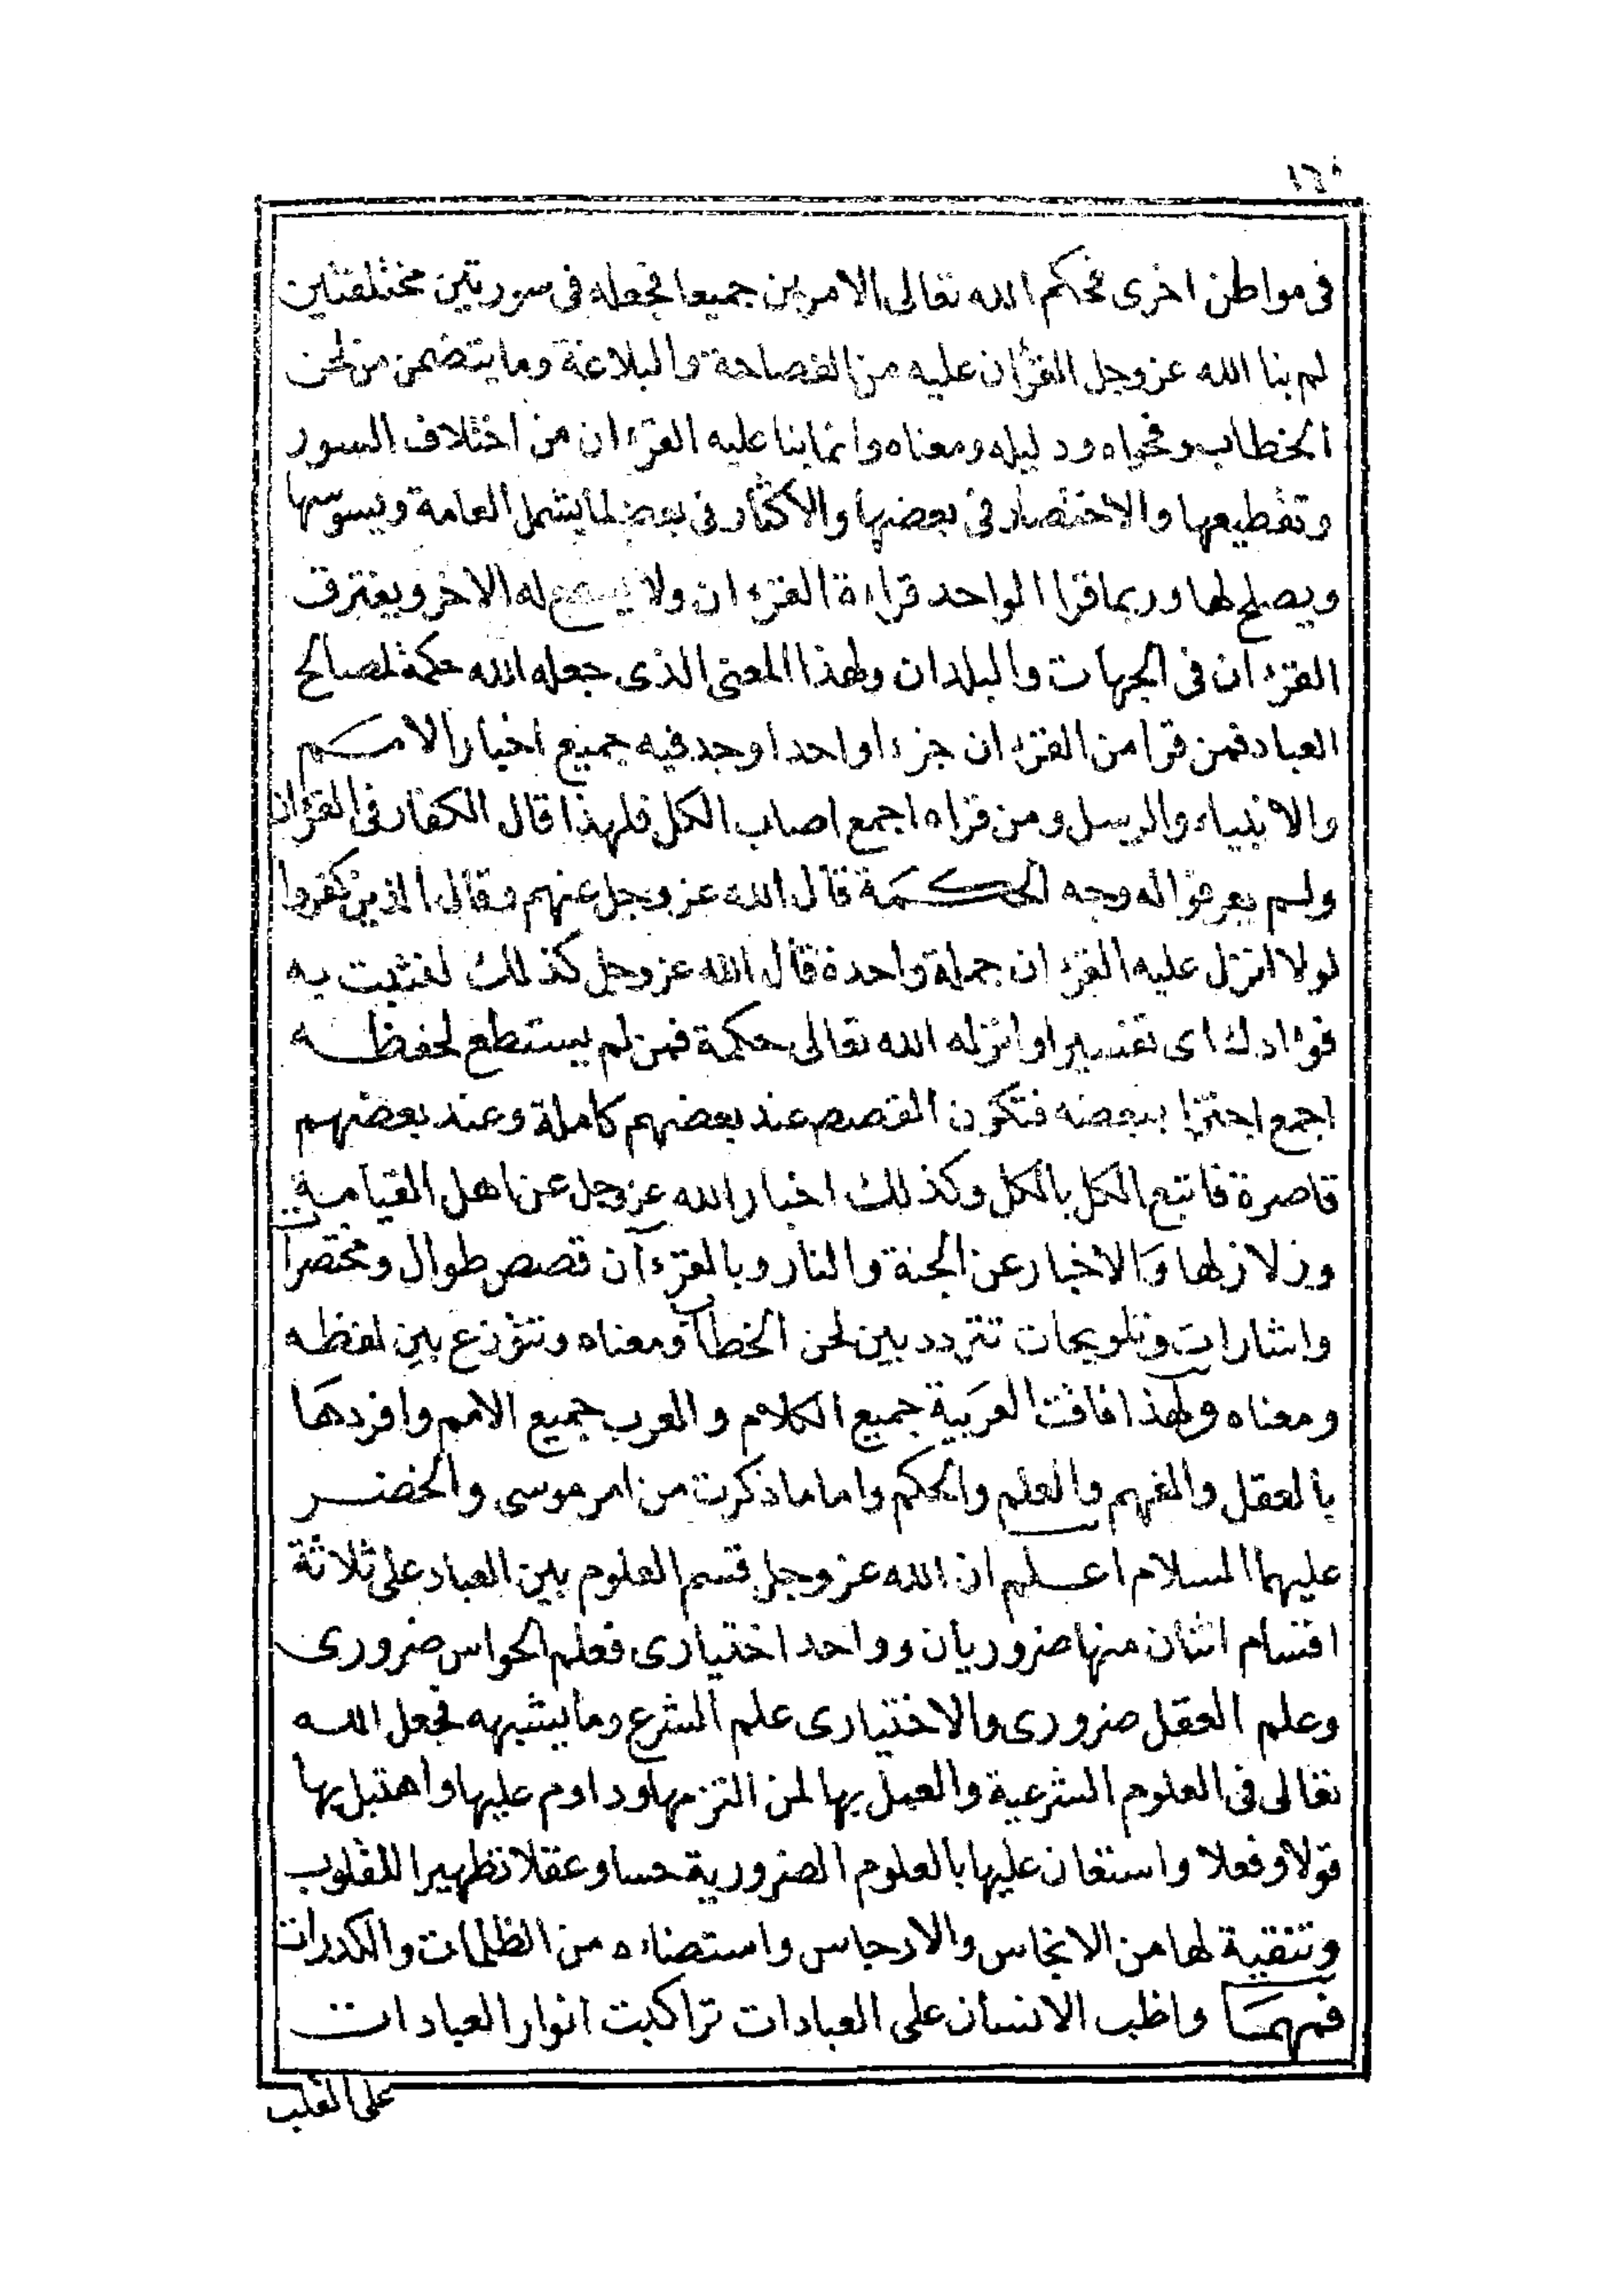 ١٦٠
فى مواطن اخرى فحكم الله تعالى الامرين جميعا فجعله فى سورتين مختلفتين
لم بنا الله عز وجل القرءان عليه من الفصاحة والبلاغة وما يتضمن من لحن
الخطاب وفحواه ودليله ومعناه وانما بنا عليه القرءان من اختلاف السور
وتقطيعها والاختصار فى بعضها والاكثار فى بعض لما يشمل العامة ويسوسها
ويصلح لها وربما قرا الواحد قراءة القرءان ولا يسمع له الاخر ويفترق
القرءان فى الجهات والبلدان ولهذا المعنى الذى جعله الله حكمة لمصالح
العباد فمن قرا من القرءان جزءا واحدا وجد فيه جميع اخبار الامم
والانبياء والرسل ومن قراه اجمع اصاب الكل فلهذا قال الكفار فى القرءان
ولم يعرفوا له وجه الحكمة قال الله عز وجل عنهم وقال الذين كفروا
لولا انزل عليه القرءان جملة واحدة قال الله عز وجل كذلك لنثبت به
فؤادك اى تفسيرا وانزله الله تعالى حكمة فمن لم يستطع لحفظه
اجمع اجتزا ببعضه فتكون القصص عند بعضهم كاملة وعند بعضهم
قاصرة فاتبع الكل بالكل وكذلك اخبار الله عز وجل عن اهل القيامة
وزلازلها والاخبار عن الجنة والنار وبالقرءان قصص طوال ومختصرات
واشارات وتلويحات تتردد بين لحن الخطاب ومعناه وتتوزع بين لفظه
ومعناه ولهذا فاقت العربية جميع الكلام والعرب جميع الامم وافردها
بالعقل والفهم والعلم والحكم واما ما ذكرت من امر موسى والخضر
عليهما السلام اعلم ان الله عز وجل قسم العلوم بين العباد على ثلاثة
اقسام اثنان منها ضروريان وواحد اختيارى فعلم الحواس ضرورى
وعلم العقل ضرورى والاختيارى علم الشرع وما يشبهه فجعل الله
تعالى فى العلوم الشرعية والعمل بها لمن التزمها وداوم عليها واهتبل بها
قولا وفعلا واستعان عليها بالعلوم الضرورية حسا وعقلا تطهيرا للقلوب
وتنقية لها من الانجاس والارجاس واستضاءه من الظلمات والكدرات
فمهما واظب الانسان على العبادات تراكبت انوار العبادات
على القلب